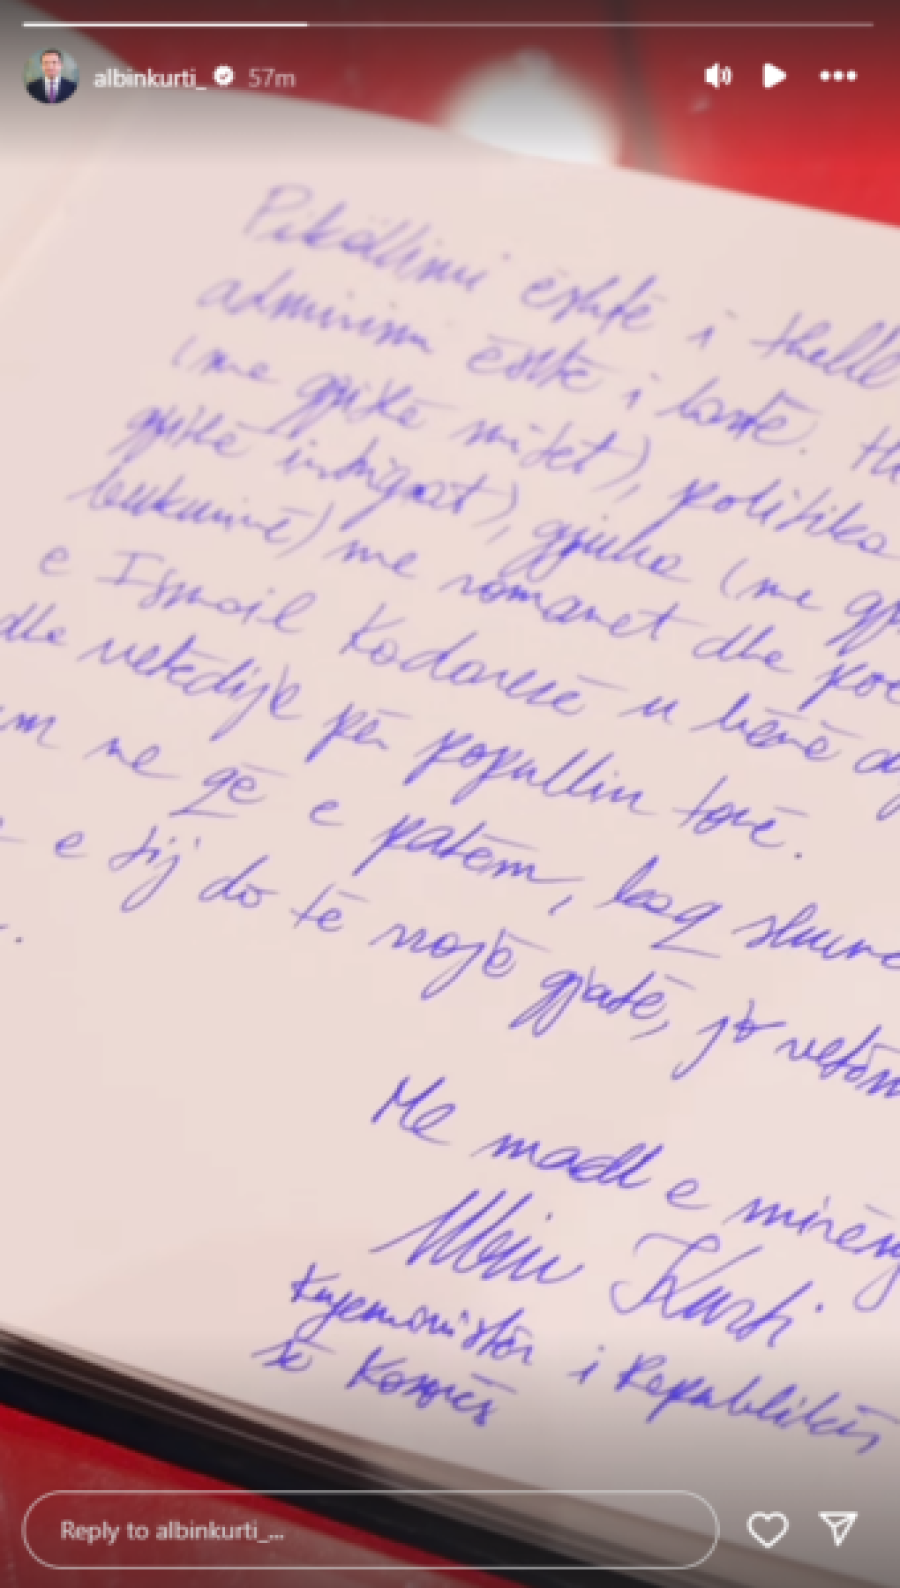 albinkurti_ 57m
Pikëllimi është i thellë
admirimi është i lartë.
(me gjithë mitet), politika
gjithë intrigat), gjuha (me
bukurinë) me romanet dhe
e Ismail Kadaresë u bënë
dhe vetëdije për popullin tonë.
ne që e patëm, kaq shumë
e tij do të rrojë gjatë, jo vetëm
Me mall e mirënj
Albin Kurti
Kryeministër i Republikës
së Kosovës
Reply to albinkurti_...